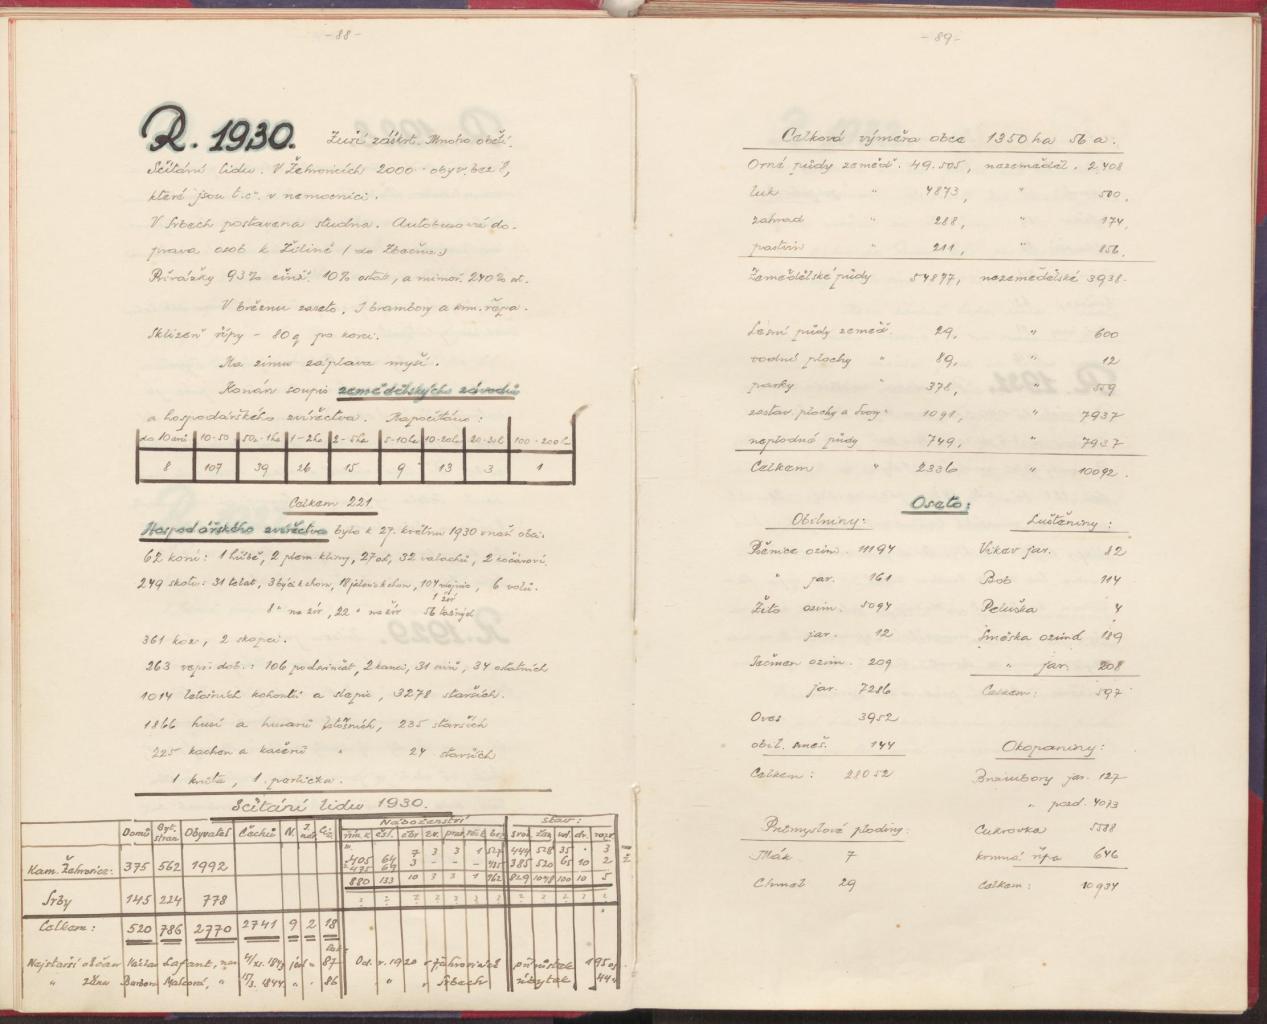 - 88 -
R. 1930. Zuří záškrt. Mnoho obětí.
Sčítání lidu. V Žehrovicích 2000 obyv. bez 8,
které jsou t. č. v nemocnici.
V Srbech postavena studna. Autobusová do-
prava osob k Žilině (do Zbečna)
Přirážky 93% činž. 10% ostat., a mimoř. 240% st.
V březnu zaseto. I brambory a krm. řepa.
Sklizeň řípy - 80 q po korci.
Na zimu záplava myší.
Konán soupis zemědělských závodů
a hospodářského zvířectva. Napočítáno :
do 10 arů 10-50 50a-1ha 1-2ha 2-5ha 5-10ha 10-20ha 20-50h 100-200h
8 107 39 26 15 9 13 3 1
Celkem 221
Hospodářského zvířectva bylo k 27. květnu 1930 v naší obci:
62 koní : 1 hříbě, 2 plem. kliny, 27 ost, 32 valachů, 2 kočároví.
249 skotu : 31 telat, 3 býčk chov, 18 jalovic k chov, 104 dojnic, 6 volů.
8 " na žír, 22 " na žír
361 koz, 2 skopci.
263 vepř. dob. : 106 podsvinčat, 2 kanci, 31 sviň, 34 ostatních
1014 letošních kohoutů a slepic, 3278 starších.
1866 husí a husarů letošních, 235 starších
225 kachen a kačerů " 24 starších
1 krůta, 1 perlička.
Sčítání lidu 1930.
Náboženství stav:
Domů Byt. stran Obyvatel Čechů N. J. nár. Ciz. řím. k. čsl. čbr ev. prav. žid. bez svob. žen. vd. dr. rozv
7 3 3 1 527 444 528 35 3
Kam. Žehrovice: 375 562 1992 405 64 3 - - - 435 385 520 65 10 2
880 133 10 3 3 1 962 829 1048 100 10 5
Srby 145 224 778 ? ? ? ? ? ? ? ? ? ? ? ?
Celkem : 520 786 2770 2741 9 2 18
Nejstarší občan Václav Lafant, nar. 1843 87 Od r. 1920 v Žehrovicích přírůstek 195
" žena Barbora " 1844 86 " " Srbech úbytek 44
- 89 -
Celková výměra obce 1350 ha 56 a:
Orné půdy zeměď. 49.505, nezeměděl. 2.408
luk " 4873, " 500,
zahrad " 288, " 174,
pastvin " 211, " 856,
Zemědělské půdy 54877, nezemědělské 3938.
Lesní půdy zeměď. 29, " 600
vodní plochy " 89, " 12
parky " 378, " 559
zastav. plochy a dvory " 1091, " 7937
neplodné půdy 749, " 7937
Celkem " 2336 " 10092.
Oseto:
Obilniny:
Pšenice ozim. 11194
" jar. 161
Žito ozim. 5094
jar. 12
Ječmen ozim. 209
jar. 7286
Oves 3952
obil. směs. 144
Celkem : 28052
Průmyslové plodiny:
Mák 7
Chmel 29
Luštěniny :
Vikev jar. 82
Bob 114
Peluška 4
Směska ozimá 189
" jar. 208
Celkem : 597
Okopaniny:
Brambory jar. 127
" pozd. 4073
Cukrovka 5588
krmná řípa 646
Celkem : 10934